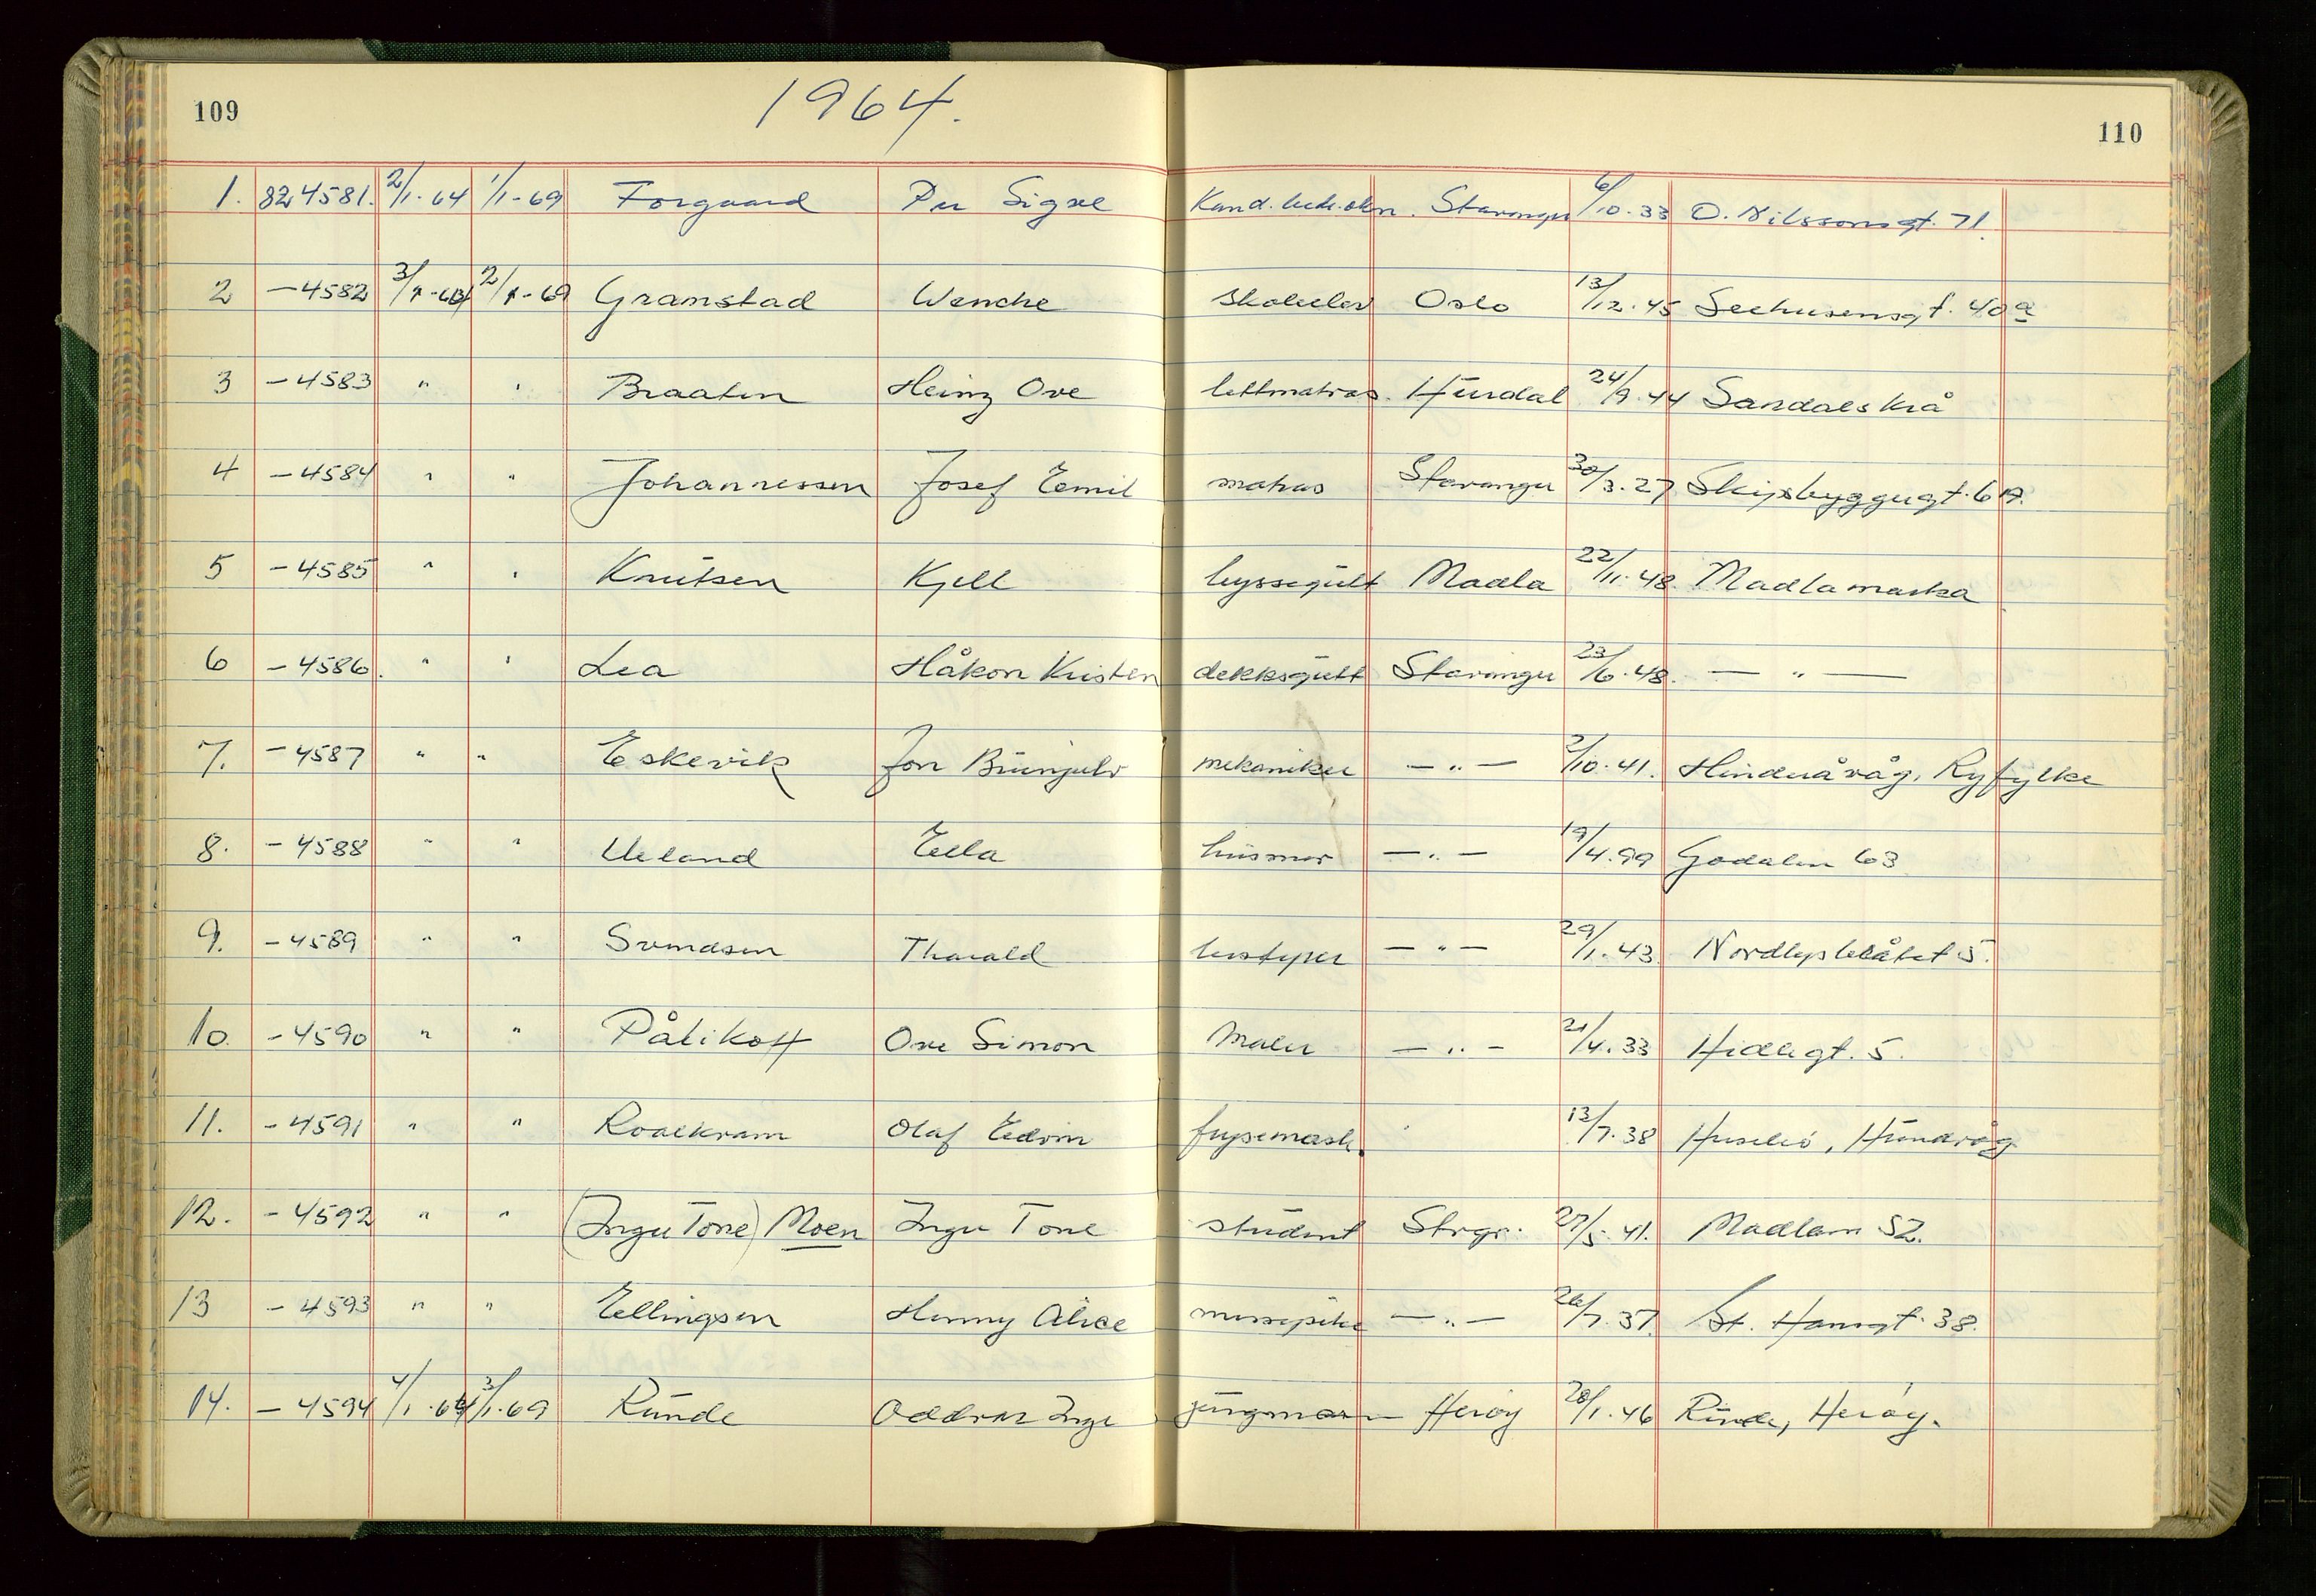 109
1964.
110
1. 824581. 2/1-64 1/1-69 Forgaard Per Sigve Kand. Stavanger 6/10.33 O. Nilssonsgt. 71.
2 -4582 3/1-64 2/1-69 Gramstad Wenche skoleelev Oslo 13/12.45 Seehusensgt. 40a
3 -4583 " " Braaten Heinz Ove lettmatros. Hurdal 24/9.44 Sandaeskrå
4 -4584 " " Johannessen Josef Emil matros Stavanger 30/3.27 Skipsbyggergt. 6
5 -4585 " " Knutsen Kjell byssegutt Madla 22/11.48. Madlamarka
6 -4586. " " Lea Håkon Kristen dekksgutt Stavanger 23/6.48. — " —
7. -4587 " " Eskevik Jon Brünjulv mekaniker — " — 2/10.41. Hinderåvåg, Ryfylke
8. -4588 " " Ueland Ella husmor — " — 19/4.99 Godalen 63
9. -4589 " " Svendsen Tharald — " — 29/1.43 5.
10. -4590 " " Pålikoff Ove Simon Maler — " — 21/4.33 Hidlegt. 5.
11. -4591 " " Roalkvam Olaf Edvin frysemask. " 13/7.38 Husebø, Hundvåg
12. -4592 " " (Inger Tone) Moen Inger Tone student Stvgr. 27/5.41. Madlavn 52.
13 -4593 " " Ellingsen Henny Alice messepike — " — 26/7.37. St. Hansgt. 38.
14. -4594 4/1.64 3/1.69 Runde Oddvar Inge jungmann Herøy 28/1.46 Runde, Herøy.